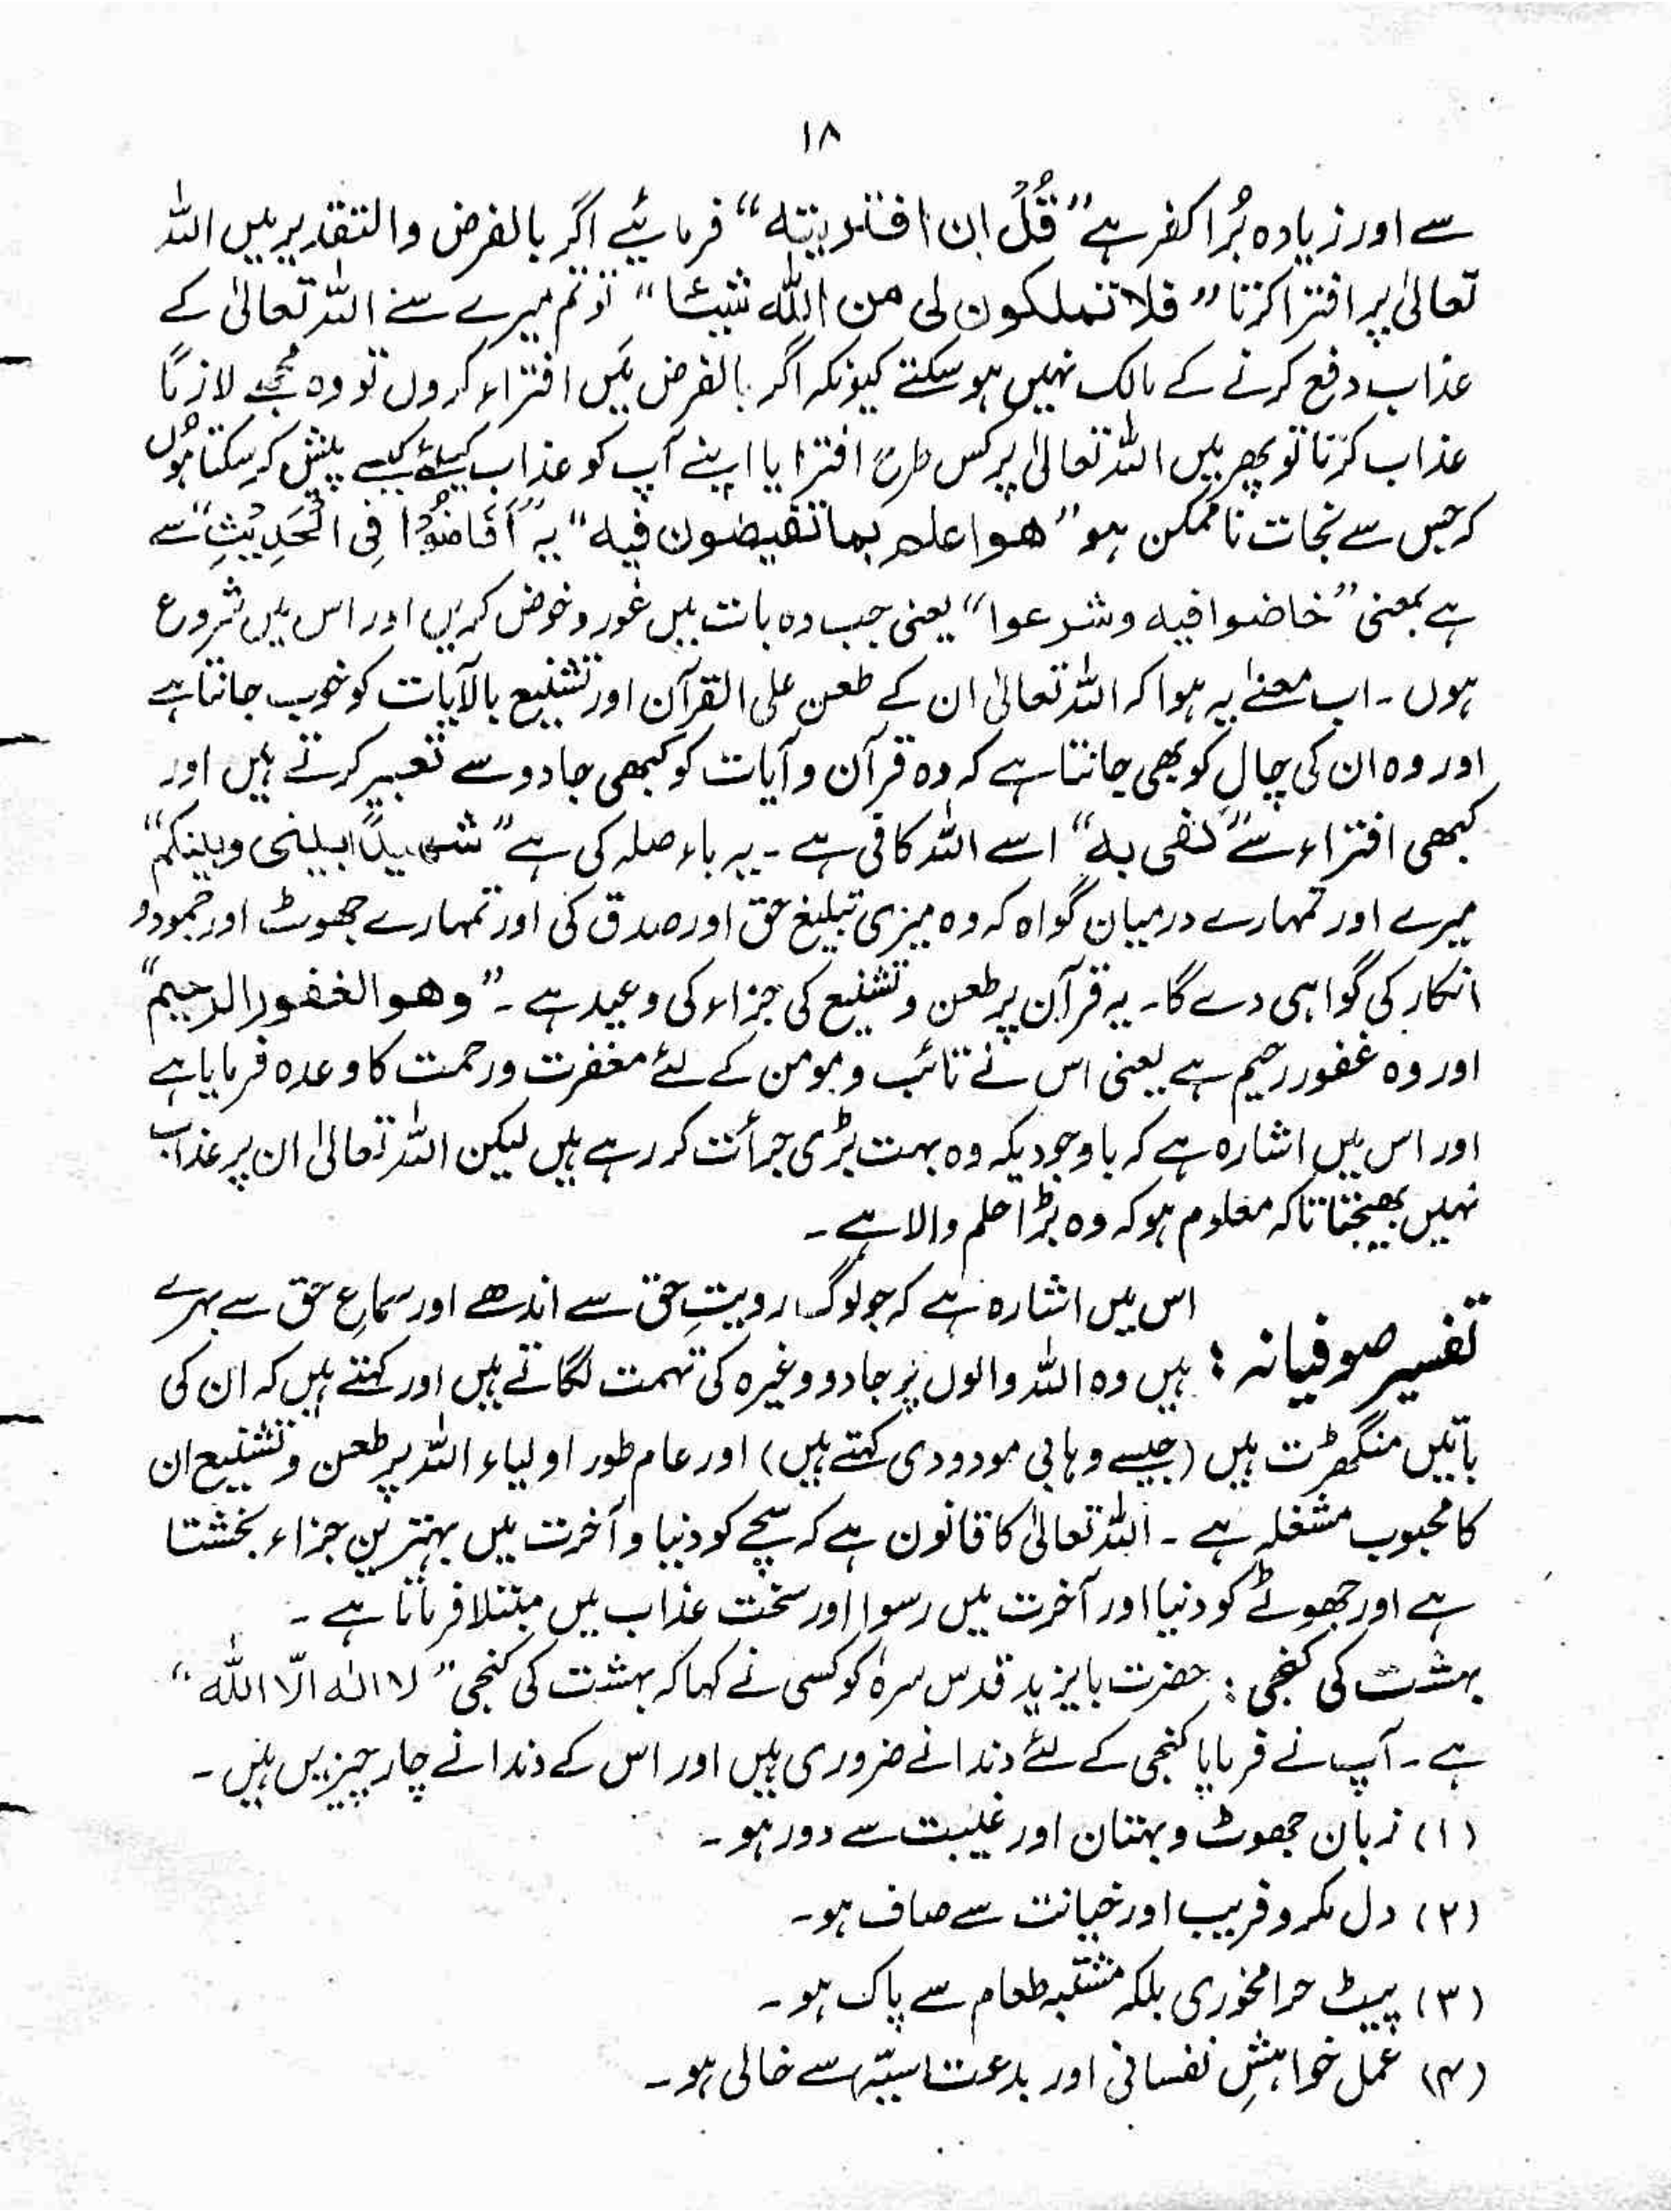 ۱۸
سے اور زیادہ بُرا کفر ہے ”قُلْ ان افتریتہ“ فرمائیے اگر بالفرض والتقدیر میں اللہ
تعالیٰ پر افترا کرتا ”فلا تملکون لی من اللہ شیئا“ تو تم میرے سے اللہ تعالیٰ کے
عذاب دفع کرنے کے مالک نہیں ہو سکتے کیونکہ اگر بالفرض میں افتراء کروں تو وہ مجھے لازمًا
عذاب کرتا تو پھر میں اللہ تعالیٰ پر کس طرح افترا یا اپنے آپ کو عذاب کیلئے کیسے پیش کر سکتا ہوں
کہ جس سے نجات ناممکن ہو ”ھو اعلم بما تفیضون فیہ“ یہ ”اَفَاضُوْا فِی الْحَدِیْثِ“ سے
ہے بمعنی ”خاضوا فیہ وشرعوا“ یعنی جب وہ بات میں غور و خوض کریں اور اس میں شروع
ہوں ۔ اب معنےٰ یہ ہوا کہ اللہ تعالیٰ ان کے طعن علی القرآن اور تشنیع بالآیات کو خوب جانتا ہے
اور وہ ان کی چال کو بھی جانتا ہے کہ وہ قرآن و آیات کو کبھی جادو سے تعبیر کرتے ہیں اور
کبھی افتراء سے ”کفی بہ“ اسے اللہ کافی ہے ۔ یہ باء صلہ کی ہے ”شھیدًا بینی وبینکم“
میرے اور تمہارے درمیان گواہ کہ وہ میری تبلیغ حق اور صدق کی اور تمہارے جھوٹ اور جمود و
انکار کی گواہی دے گا ۔ یہ قرآن پر طعن و تشنیع کی جزاء کی وعید ہے ۔ ”وھو الغفور الرحیم“
اور وہ غفور رحیم ہے یعنی اس نے تائب و مومن کے لئے مغفرت و رحمت کا وعدہ فرمایا ہے
اور اس میں اشارہ ہے کہ باوجودیکہ وہ بہت بڑی جرأت کر رہے ہیں لیکن اللہ تعالیٰ ان پر عذاب
نہیں بھیجتا تاکہ معلوم ہو کہ وہ بڑا حلم والا ہے ۔
اس میں اشارہ ہے کہ جو لوگ رویتِ حق سے اندھے اور سماعِ حق سے بہرے
تفسیر صوفیانہ : ہیں وہ اللہ والوں پر جادو وغیرہ کی تہمت لگاتے ہیں اور کہتے ہیں کہ ان کی
باتیں منگھڑت ہیں (جیسے وہابی مودودی کہتے ہیں) اور عام طور اولیاء اللہ پر طعن و تشنیع ان
کا محبوب مشغلہ ہے ۔ اللہ تعالیٰ کا قانون ہے کہ سچے کو دنیا و آخرت میں بہترین جزاء بخشتا
ہے اور جھوٹے کو دنیا اور آخرت میں رسوا اور سخت عذاب میں مبتلا فرماتا ہے ۔
بہشت کی کنجی : حضرت بایزید قدس سرہٗ کو کسی نے کہا کہ بہشت کی کنجی ”لا الٰہ الّا اللہ“
ہے ۔ آپ نے فرمایا کنجی کے لئے دندانے ضروری ہیں اور اس کے دندانے چار چیزیں ہیں ۔
(۱) زبان جھوٹ و بہتان اور غیبت سے دور ہو ۔
(۲) دل مکر و فریب اور خیانت سے صاف ہو ۔
(۳) پیٹ حرامخوری بلکہ مشتبہ طعام سے پاک ہو ۔
(۴) عمل خواہشِ نفسانی اور بدعت سیئہ سے خالی ہو ۔